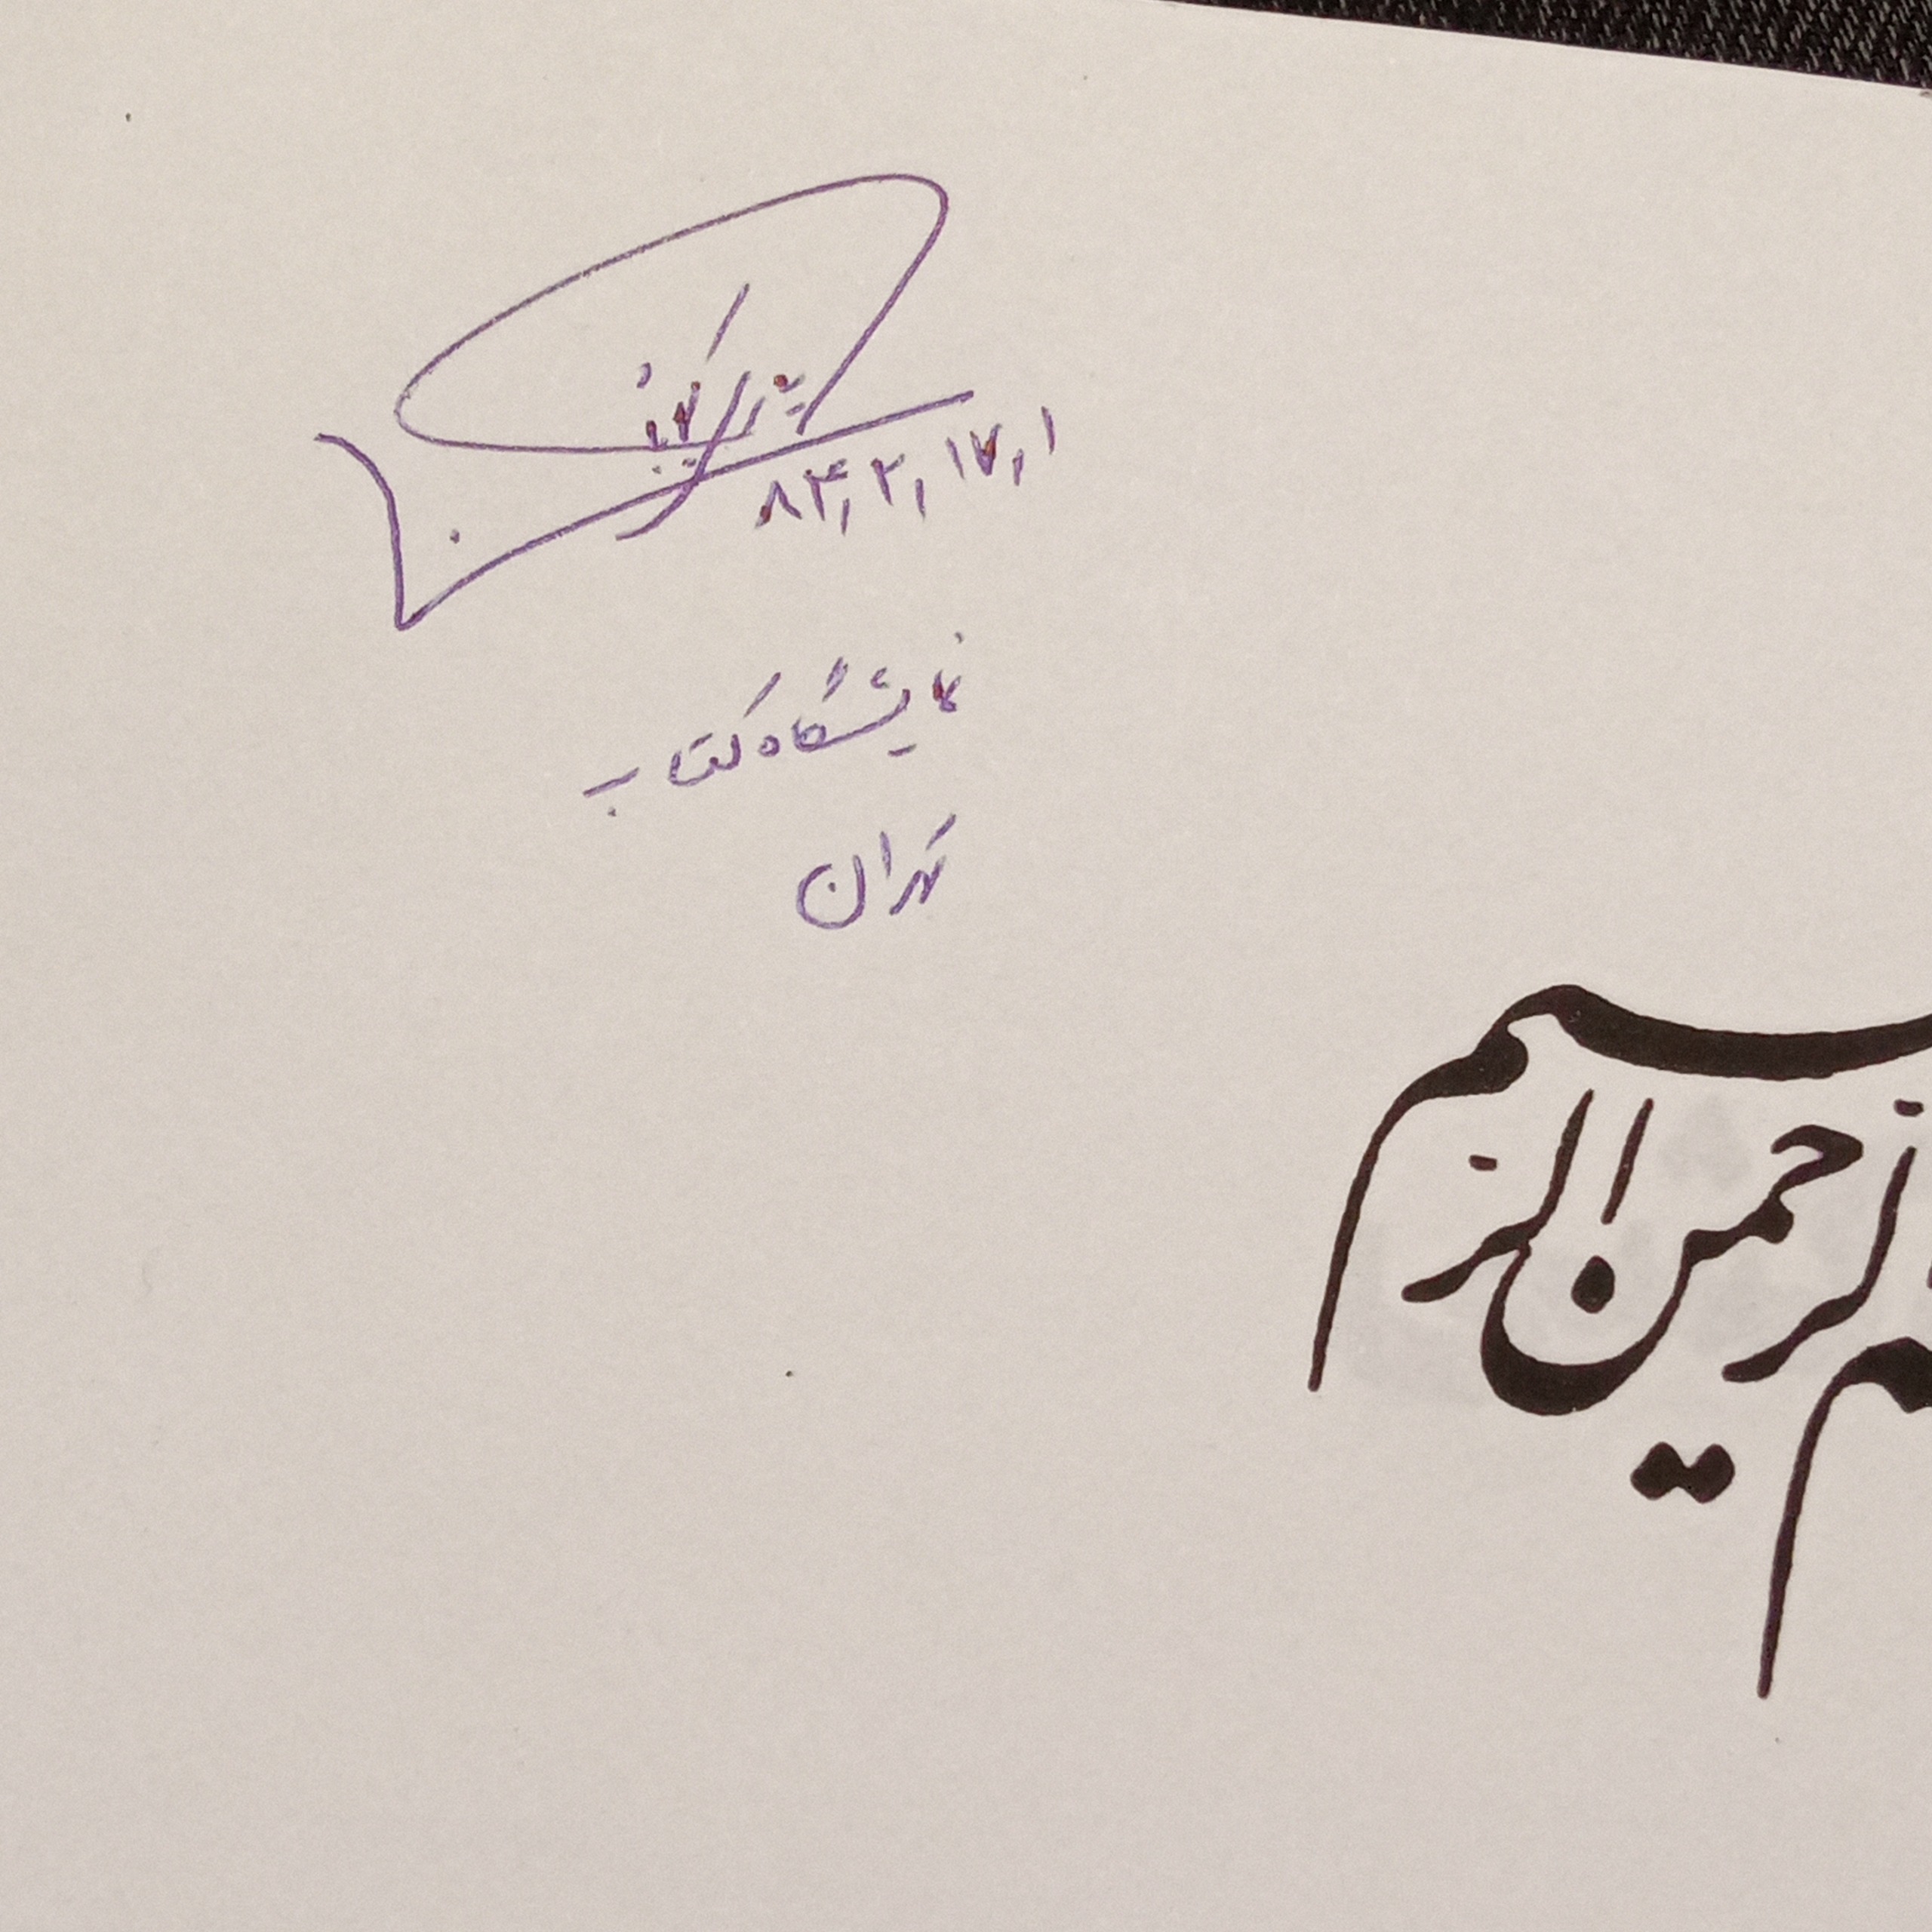 ۸۴,۲,۱۷,۱
نمایشگاه کتاب
تهران
بسم
الرحمن الرحیم